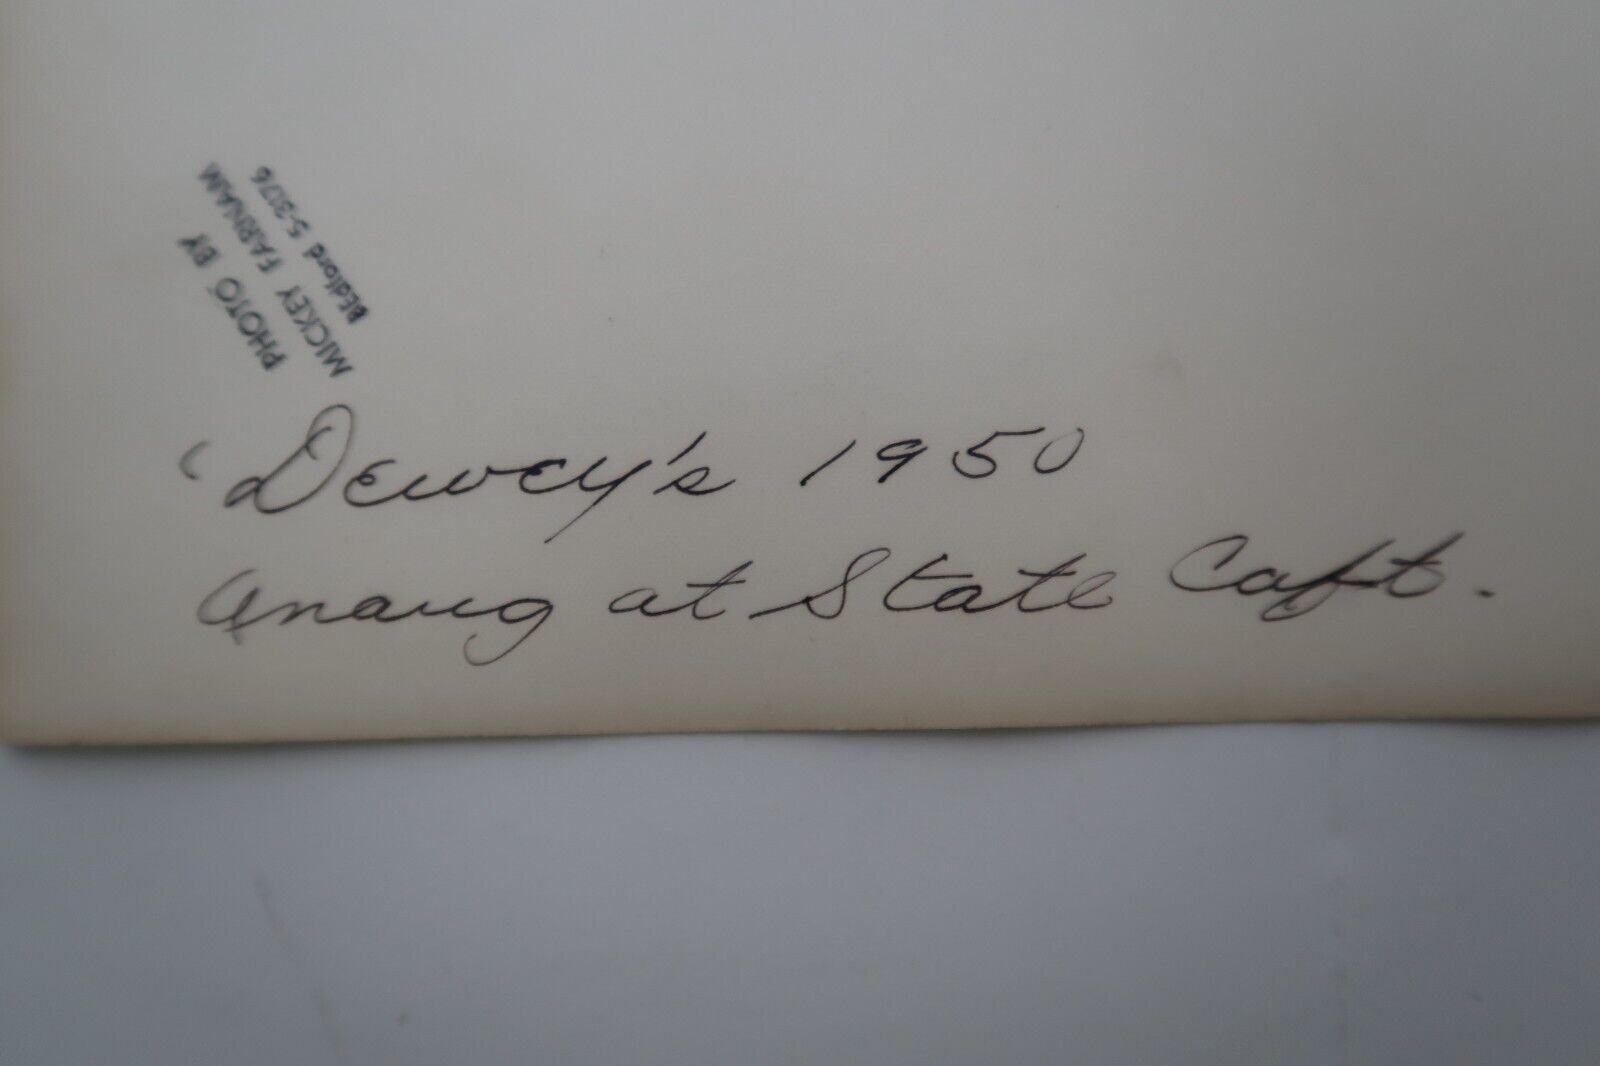 PHOTO BY
MICKEY FARNAM
BEdford 5-3076
Dewey's 1950
at State Capt.